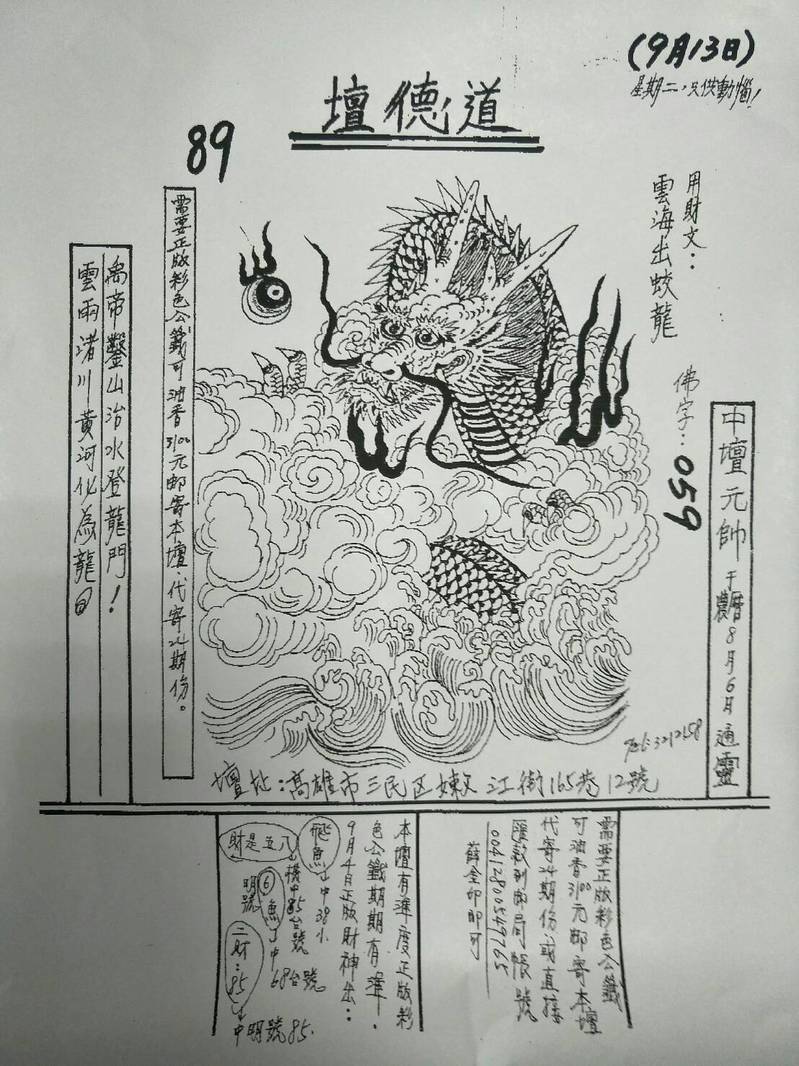 (9月13日)
星期二,只供動惱!
壇德道
89
用財文:
雲海出蛟龍
佛字:059
中壇元帥于農曆8月6日通靈
需要正版彩色公籤可油香3100元邮寄本壇.代寄24期份。
禹帝鑿山治水登龍門!
雲雨渚川黃河化為龍
Tel:3212158
壇址:高雄市三民区 江街165巷12號
需要正版彩色公籤
可油香3100元邮寄本壇
代寄24期份.或直接
匯款到邮局帳號
00412800549765
薛全卯即可
本壇有準度正版彩
色公籤期期有準.
9月4日正版財神出:
飛魚 中38小
機中85台號
財是五八
⑥魚 中68台號
明號
二財:85 中明號85.